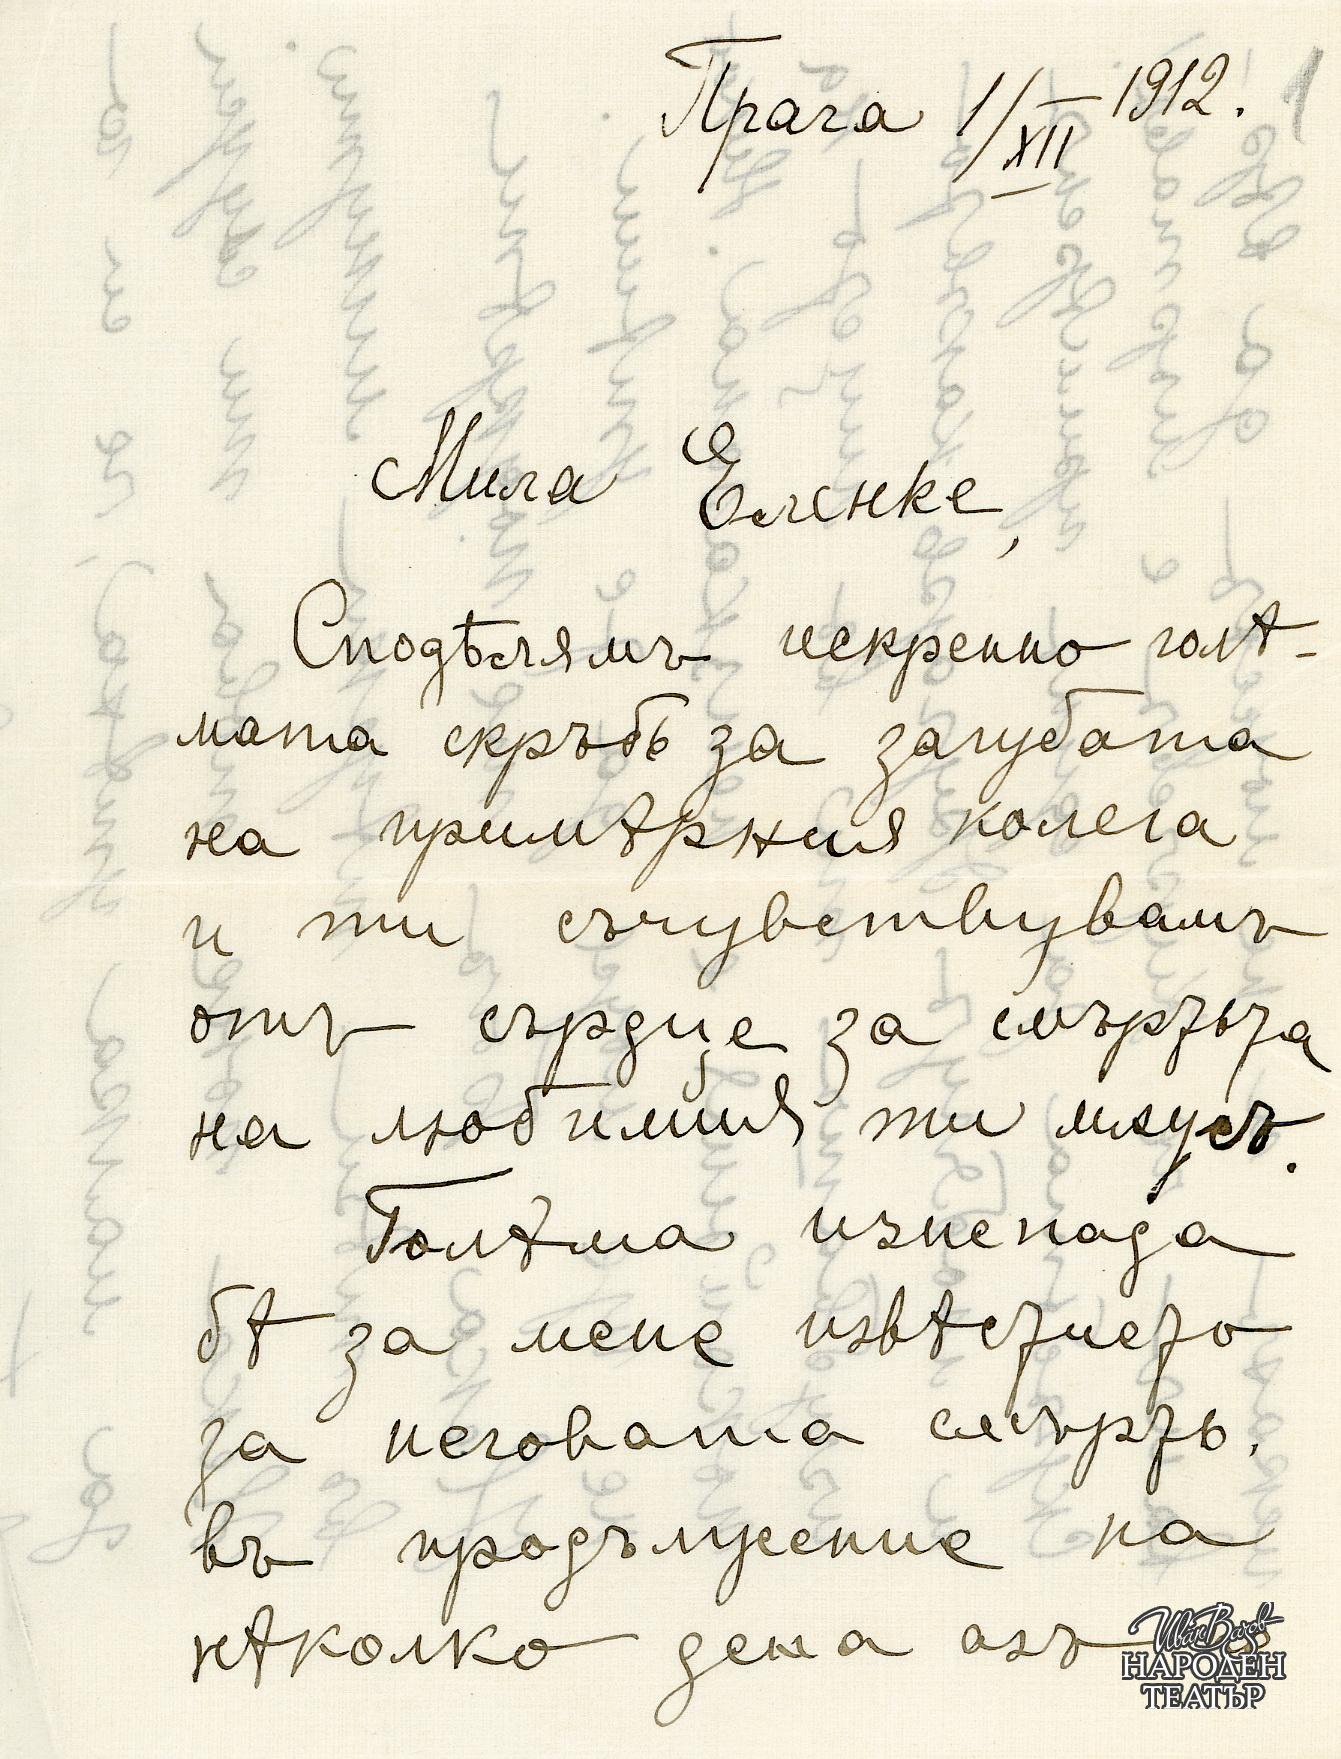 Прага 1/XII 1912. 1
Мила Еленке,
Сподѣлямъ искренно голѣ-
мата скръбь за загубата
на примѣрния колега
и ти съчувствувамъ
отъ сърдце за смъртьта
на любимия ти мѫжъ.
Голѣма изненада
бѣ за мене известието
за неговата смърть.
въ продължение на
нѣколко дена азъ
Иван Вазов
НАРОДЕН
ТЕАТЪР